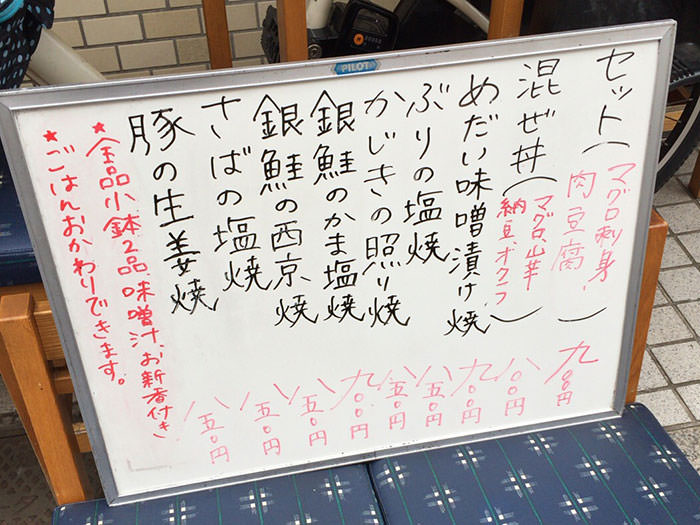 PILOT
セット(マグロ刺身、肉豆腐) 九〇〇円
混ぜ丼(マグロ、山芋、納豆、オクラ) 八〇〇円
めだい味噌漬け焼 九〇〇円
ぶりの塩焼 八五〇円
かじきの照り焼 八五〇円
銀鮭のかま塩焼 九〇〇円
銀鮭の西京焼 八五〇円
さばの塩焼 八五〇円
豚の生姜焼 八五〇円
★全品小鉢2品、味噌汁、お新香付き
★ごはんおかわりできます。